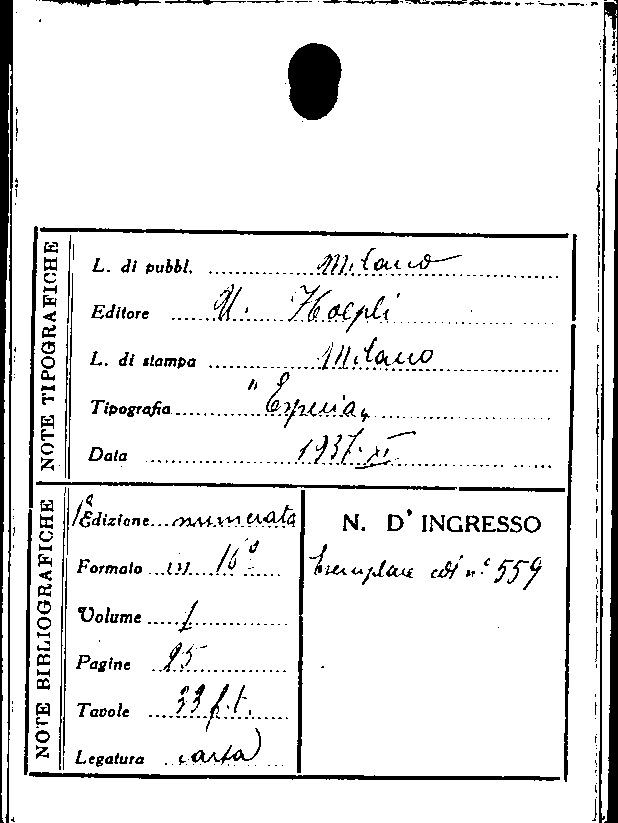 NOTE TIPOGRAFICHE
L. di pubbl. Milano
Editore U. Hoepli
L. di stampa Milano
Tipografia "Esperia"
Data 1937-XI
NOTE BIBLIOGRAFICHE
1ª Edizione numerata
Formato in 16º
Volume 1
Pagine 25
Tavole 33 f.t.
Legatura carta
N. D' INGRESSO
Esemplare n.º 559